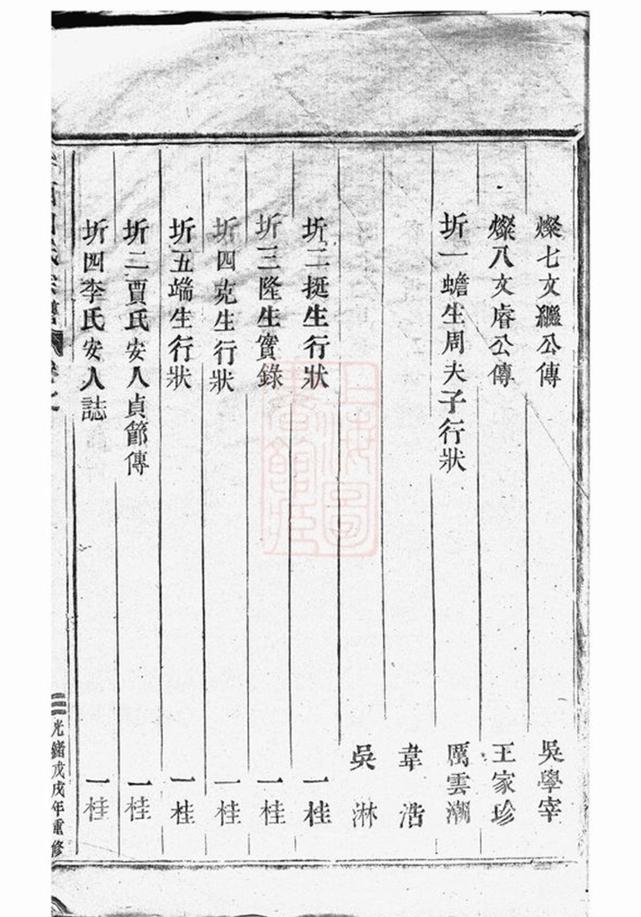 燦七文繼公傳 吳學宰
燦八文睿公傳 王家珍
圻一蟾生周夫子行狀 厲雲潮
韋浩
吳淋
圻二挺生行狀 一桂
圻三隆生實錄 一桂
圻四克生行狀 一桂
圻五端生行狀 一桂
圻二賈氏安人貞節傳 一桂
圻四李氏安人誌 一桂
光緒戊戌年重修
上海圖書館藏